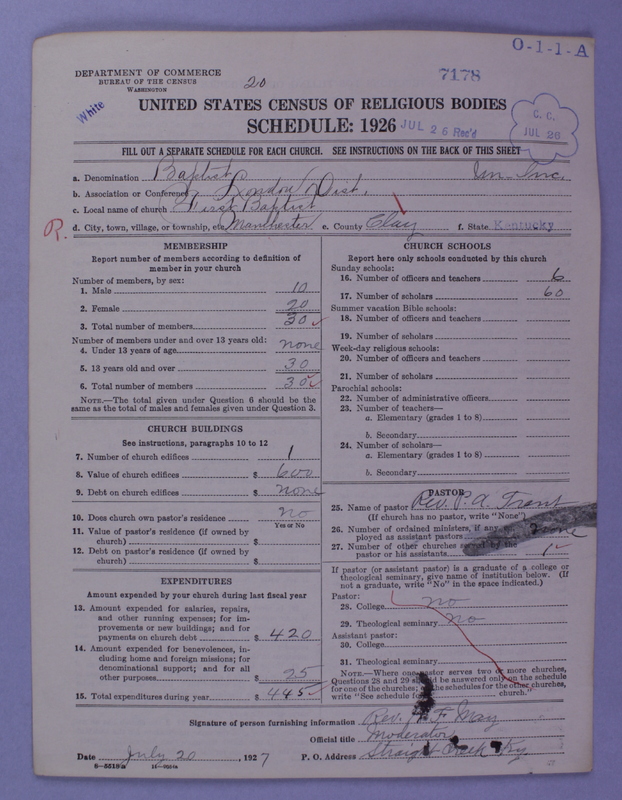 O-1-1-A
DEPARTMENT OF COMMERCE
BUREAU OF THE CENSUS
WASHINGTON
20
7178
White
UNITED STATES CENSUS OF RELIGIOUS BODIES
SCHEDULE: 1926
JUL 26 Rec'd
C. C.
JUL 26
FILL OUT A SEPARATE SCHEDULE FOR EACH CHURCH. SEE INSTRUCTIONS ON THE BACK OF THIS SHEET
a. Denomination Baptist Un-Inc.
b. Association or Conference London Dist.
c. Local name of church First Baptist
R. d. City, town, village, or township, etc. Manchester e. County Clay f. State Kentucky
MEMBERSHIP
Report number of members according to definition of
member in your church
Number of members, by sex:
1. Male 10
2. Female 20
3. Total number of members 30
Number of members under and over 13 years old:
4. Under 13 years of age none
5. 13 years old and over 30
6. Total number of members 30
NOTE.—The total given under Question 6 should be the
same as the total of males and females given under Question 3.
CHURCH BUILDINGS
See instructions, paragraphs 10 to 12
7. Number of church edifices 1
8. Value of church edifices $ 600
9. Debt on church edifices $ none
10. Does church own pastor's residence no
Yes or No
11. Value of pastor's residence (if owned by
church) $
12. Debt on pastor's residence (if owned by
church) $
EXPENDITURES
Amount expended by your church during last fiscal year
13. Amount expended for salaries, repairs,
and other running expenses; for im-
provements or new buildings; and for
payments on church debt $ 420
14. Amount expended for benevolences, in-
cluding home and foreign missions; for
denominational support; and for all
other purposes $ 25
15. Total expenditures during year $ 445
CHURCH SCHOOLS
Report here only schools conducted by this church
Sunday schools:
16. Number of officers and teachers 6
17. Number of scholars 60
Summer vacation Bible schools:
18. Number of officers and teachers
19. Number of scholars
Week-day religious schools:
20. Number of officers and teachers
21. Number of scholars
Parochial schools:
22. Number of administrative officers
23. Number of teachers—
a. Elementary (grades 1 to 8)
b. Secondary
24. Number of scholars—
a. Elementary (grades 1 to 8)
b. Secondary
PASTOR
25. Name of pastor Rev. P. A.
(If church has no pastor, write "None")
26. Number of ordained ministers, if any, em-
ployed as assistant pastors none
27. Number of other churches served by the
pastor or his assistants 1
If pastor (or assistant pastor) is a graduate of a college or
theological seminary, give name of institution below. (If
not a graduate, write "No" in the space indicated.)
Pastor:
28. College no
29. Theological seminary no
Assistant pastor:
30. College
31. Theological seminary
NOTE.—Where one pastor serves two or more churches,
Questions 28 and 29 should be answered only on the schedule
for one of the churches; on the schedules for the other churches,
write "See schedule for church."
Signature of person furnishing information Rev. F. May
Official title Moderator
Date July 20, 1927 P. O. Address Straight Creek Ky